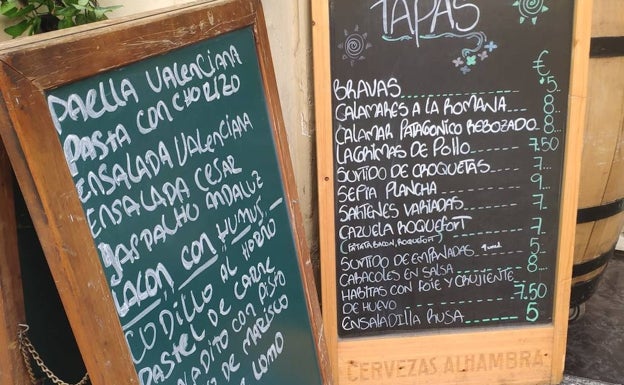 PAELLA VALENCIANA
PASTA CON CHORIZO
ENSALADA VALENCIANA
ENSALADA CESAR
GASPACHO ANDALUZ
LACON CON HUMUS
CODILLO AL HORNO
PASTEL DE CARNE
ADITO CON PISTO
DE MARISCO
DE LOMO
TAPAS
€
BRAVAS 5
CALAMARES A LA ROMANA 8
CALAMAR PATAGONICO REBOZADO 8
LAGRIMAS DE POLLO 7.50
SURTIDO DE CROQUETAS 7
SEPIA PLANCHA 9
SARTENES VARIADAS 7
CAZUELA ROQUEFORT 7
(PATATA, BACON, ROQUEFORT)
SURTIDO DE EMPANADAS 4 unid 5
CARACOLES EN SALSA 8
HABITAS CON FOIE Y CRUJIENTE
DE HUEVO 7.50
ENSALADILLA RUSA 5
CERVEZAS ALHAMBRA